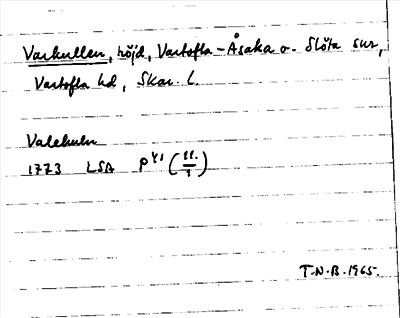 Varkullen, höjd, Vartofta-Åsaka o. Slöta snr,
Vartofta hd, Skar. l.
Valekulu
1773 LSA P41 (11./1)
T.N.B. 1965.